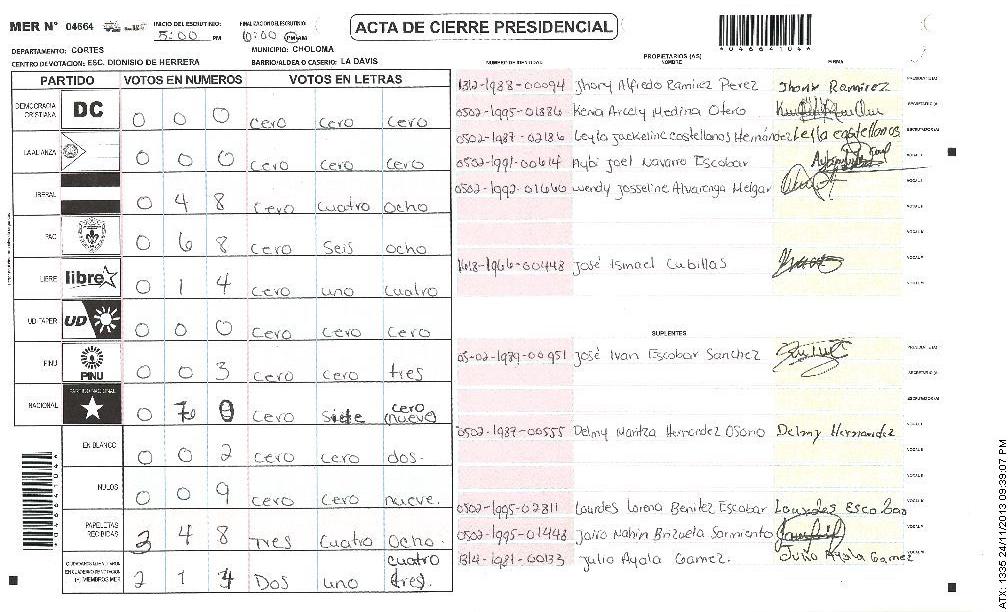 MER N° 04664
INICIO DEL ESCRUTINIO: 5:00 PM
FINALIZACION DEL ESCRUTINIO: 6:00 PM
ACTA DE CIERRE PRESIDENCIAL
DEPARTAMENTO: CORTES
MUNICIPIO: CHOLOMA
CENTRO DE VOTACION: ESC. DIONISIO DE HERRERA
BARRIO/ALDEA O CASERIO: LA DAVIS
PARTIDO VOTOS EN NUMEROS VOTOS EN LETRAS
DEMOCRACIA CRISTIANA DC 0 0 0 cero cero cero
LA ALIANZA 0 0 0 cero cero cero
LIBERAL 0 4 8 cero cuatro ocho
PAC 0 6 8 cero Seis ocho
LIBRE libre 0 1 4 cero uno cuatro
UD FAPER UD 0 0 0 cero cero cero
PINU PINU 0 0 3 cero cero tres
NACIONAL PARTIDO NACIONAL 0 7 cero siete cero (nueve)
EN BLANCO 0 0 2 cero cero dos.
NULOS 0 0 9 cero cero nueve.
PAPELETAS RECIBIDAS 3 4 8 Tres cuatro ocho.
2 1 Dos uno cuatro (tres)
NUMERO DE IDENTIDAD
PROPIETARIOS (AS)
NOMBRE
FIRMA
1312-1988-00094 Jhory Alfredo Ramirez Perez Jhory Ramirez
0502-1995-01886 Kena Arcely Medina Otero
0502-1987-02186 Leyla Jackeline castellanos Hernández Leyla castellanos
0502-1991-00614 Aybi Joel Navarro Escobar
0502-1992-01660 Wendy Josseline Alvarenga Melgar
1618-1966-00448 José Ismael Cubillas
SUPLENTES
05-02-1989-00951 José Ivan Escobar Sanchez
0502-1987-00555 Delmy Maritza Hernandez Osorio Delmy Hernandez
0502-1995-02811 Lourdes Lorena Benitez Escobar Lourdes Escobar
0502-1995-01448 Jairo Nahin Brizuela Sarmiento
1314-1981-00133 Julio Ayala Gamez. Julio Ayala Gamez
ATX: 1335 24/11/2013 09:39:07 PM